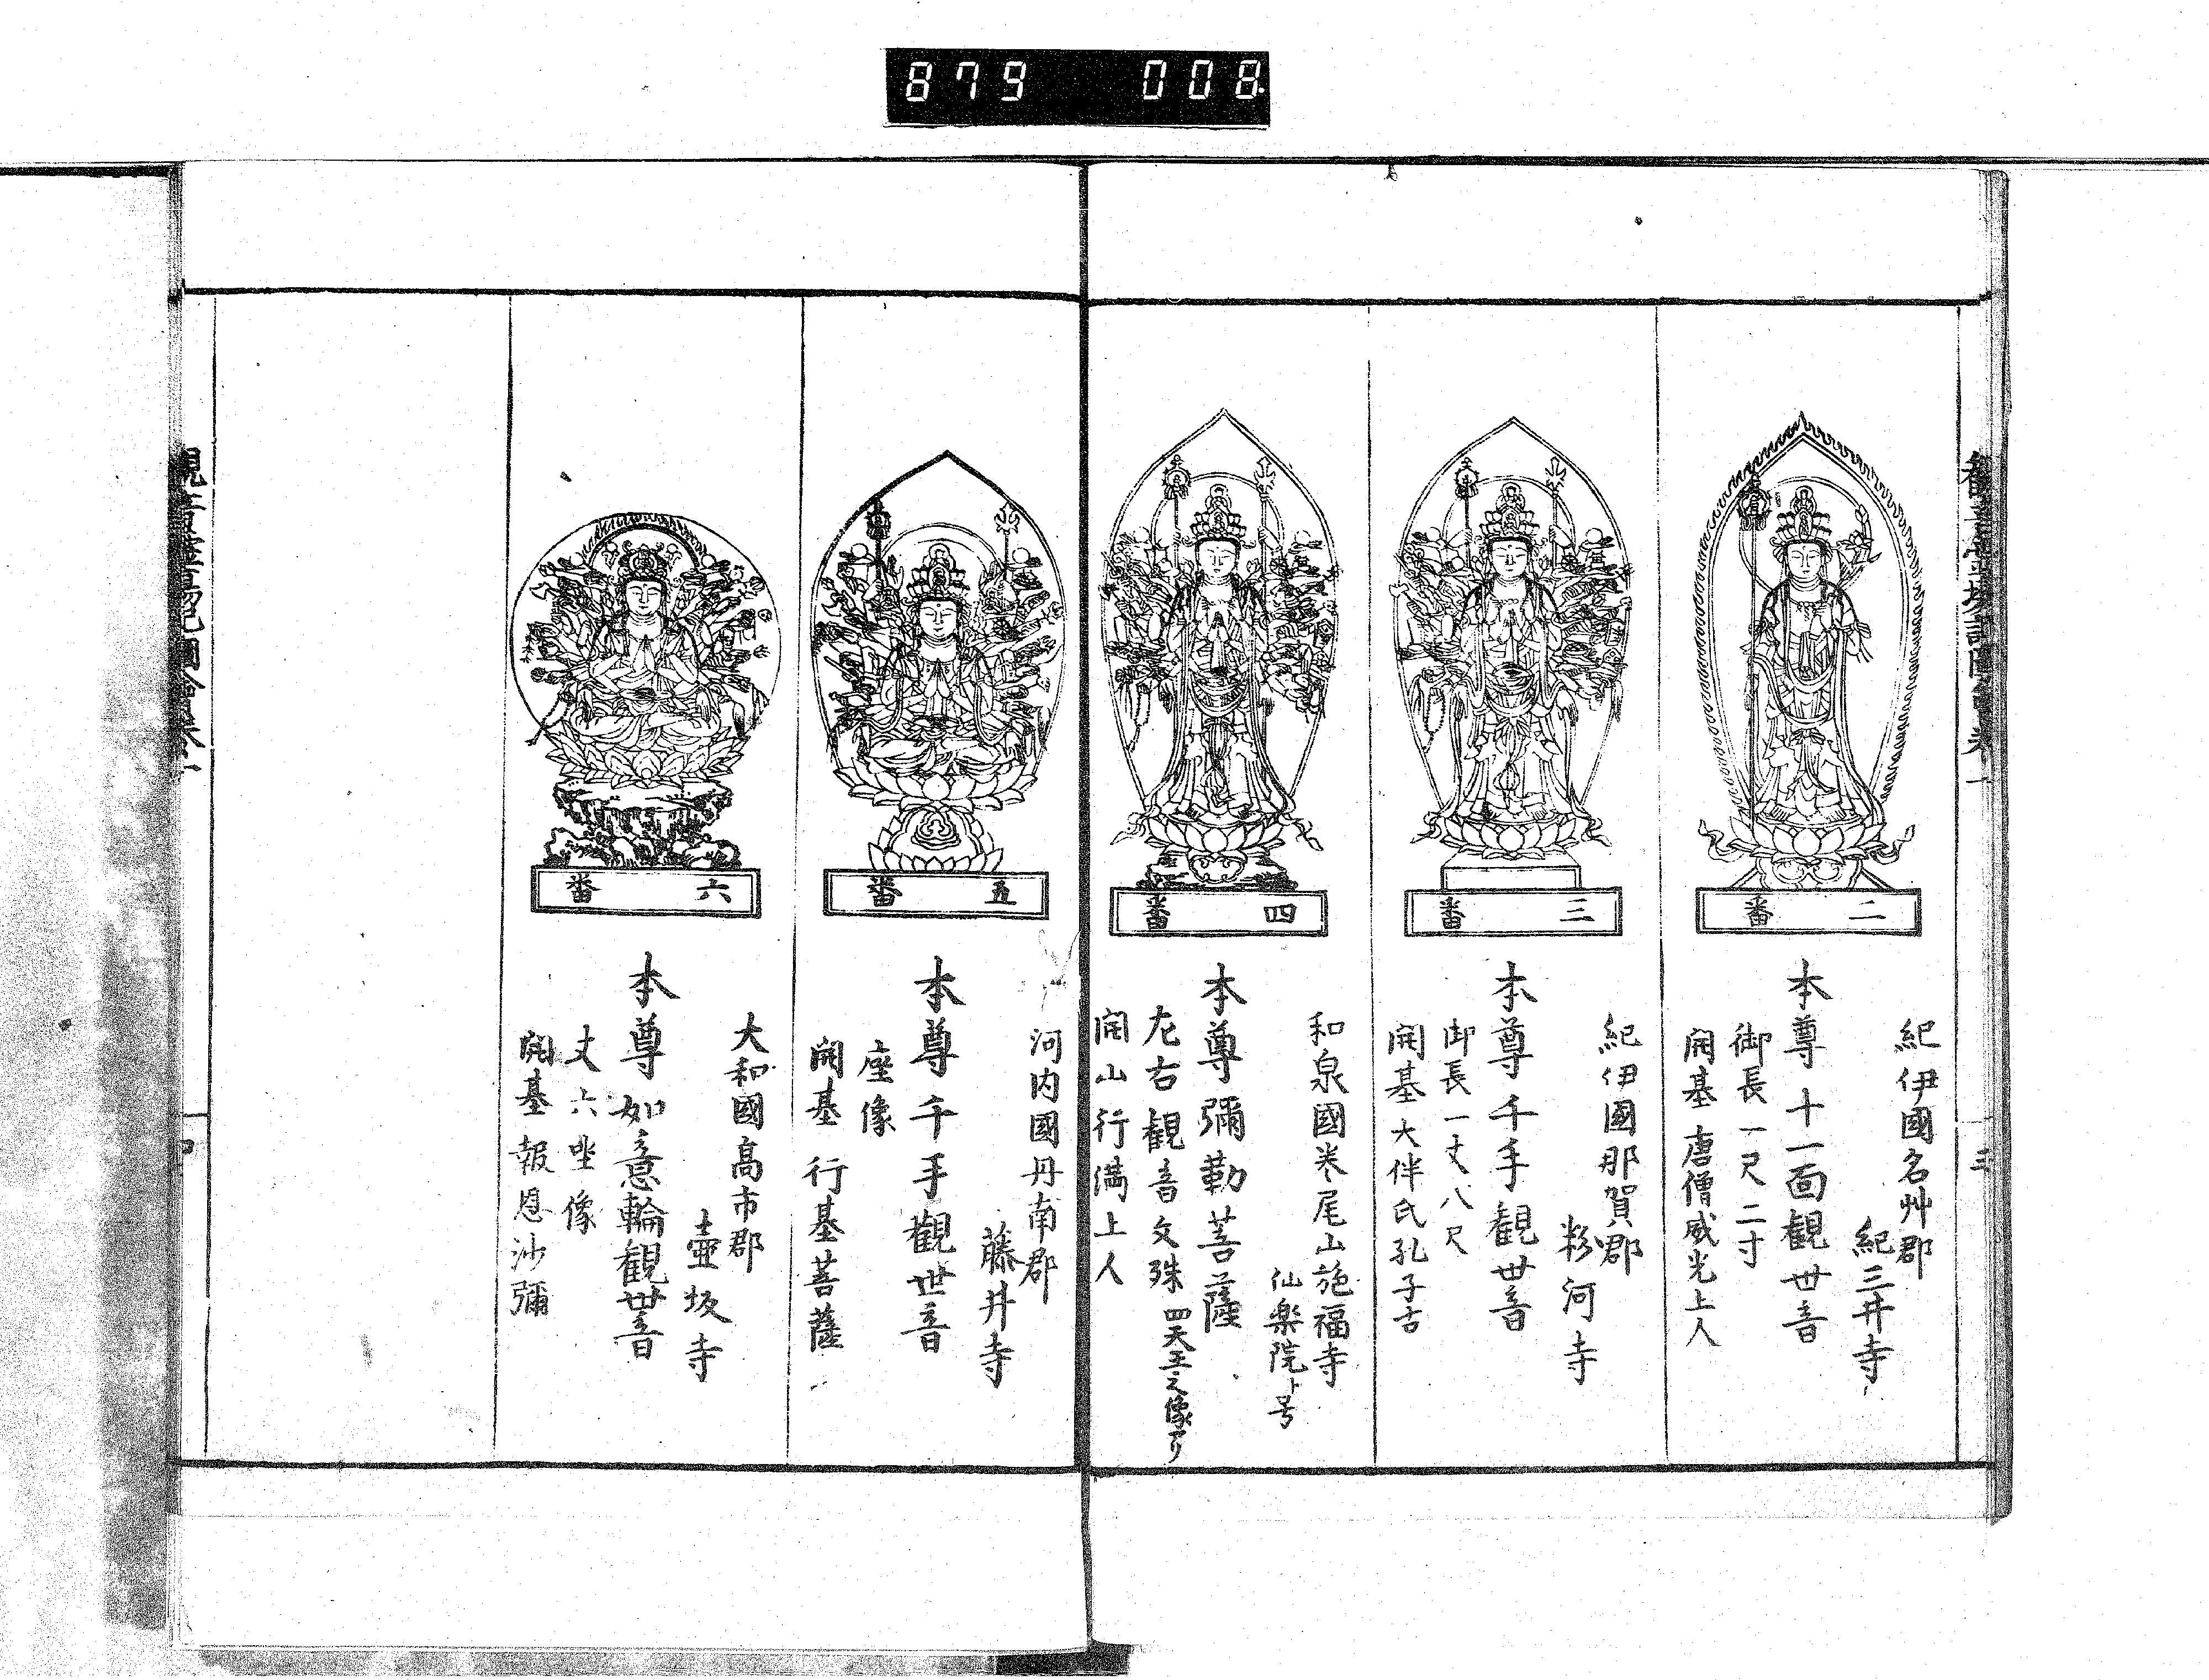 879 008
二番
紀伊國名艸郡
紀三井寺
本尊十一面観世音
御長一尺二寸
開基唐僧威光上人
三番
紀伊國那賀郡
粉河寺
本尊千手観世音
御長一丈八尺
開基大伴氏孔子古
四番
和泉國巻尾山施福寺
仙楽院ト号
本尊彌勒菩薩
左右観音文殊四天王之像アリ
開山行満上人
五番
河内國丹南郡
藤井寺
本尊千手觀世音
座像
開基行基菩薩
六番
大和國高市郡
壷坂寺
本尊如意輪観世音
丈六坐像
開基報恩沙彌
三